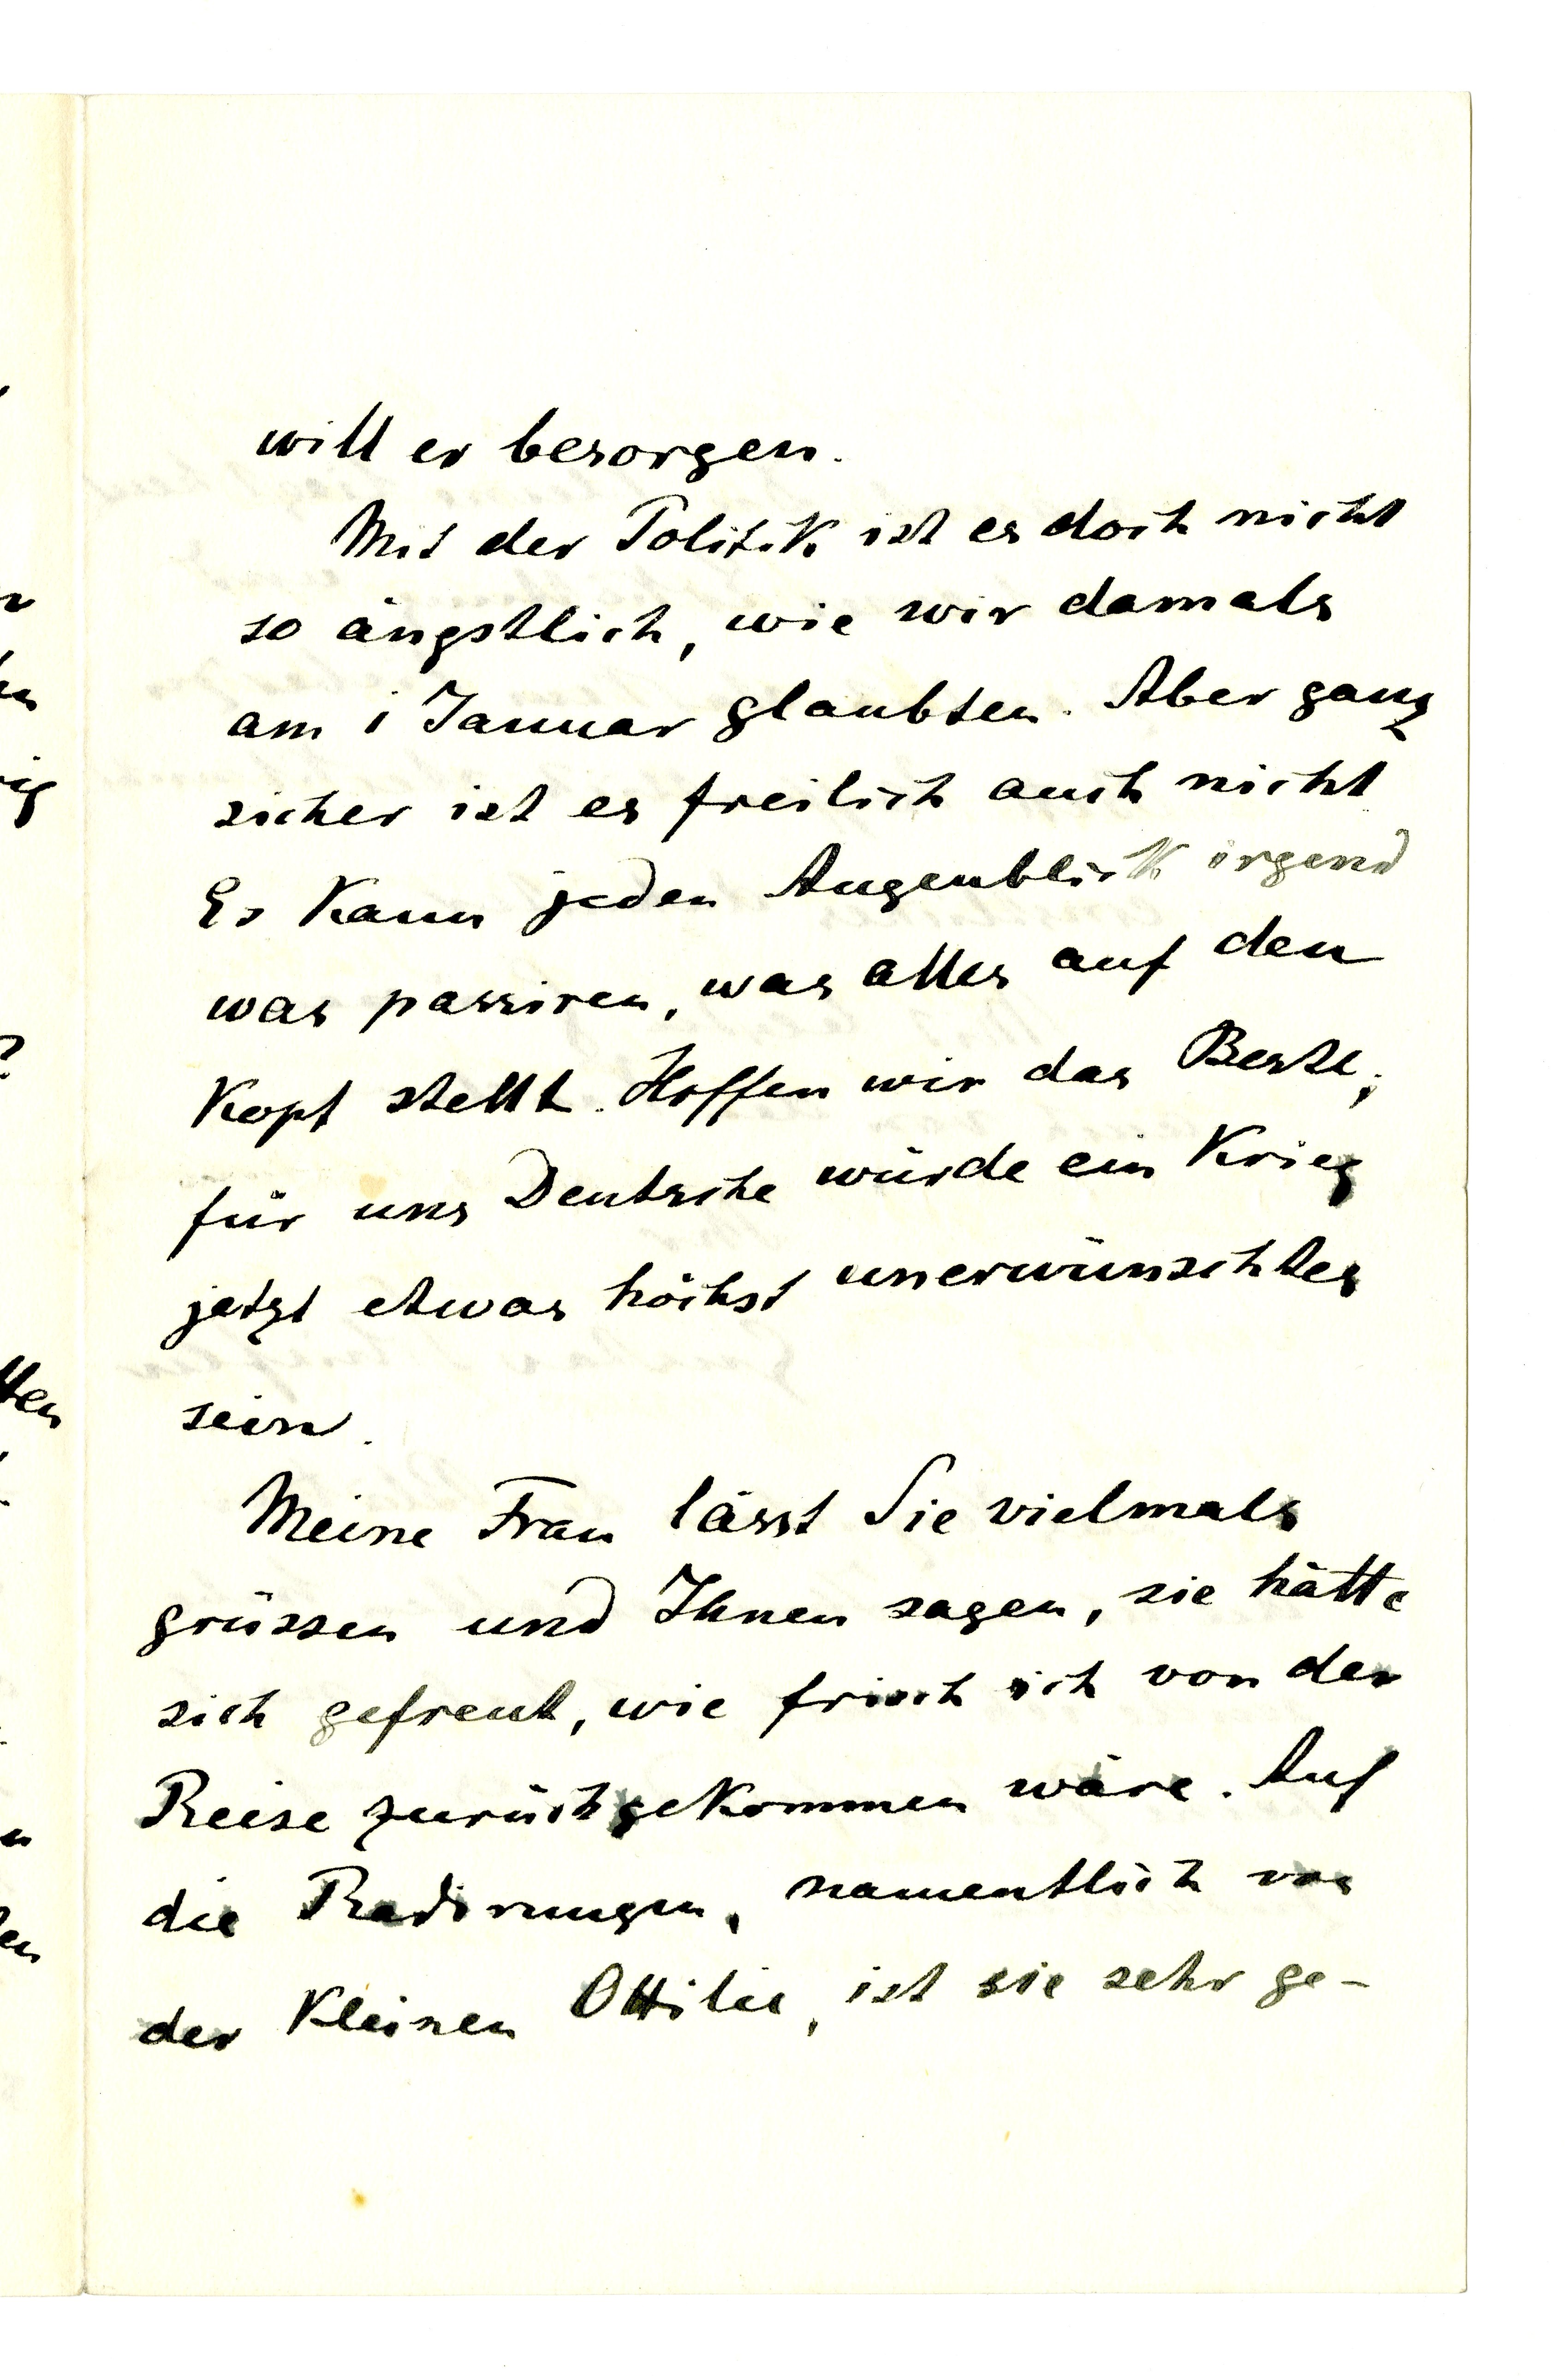 will er besorgen.
Mit der Politik ist es doch nicht
so ängstlich, wie wir damals
am 1 Januar glaubten. Aber ganz
sicher ist es freilich auch nicht
Es kann jeden Augenblick irgend
was passiren, was alles auf den
Kopf stellt. Hoffen wir das Beste;
für uns Deutsche würde ein Krieg
jetzt etwas höchst unerwünschtes
sein.
Meine Frau lässt Sie vielmals
grüssen und Ihnen sagen, sie hätte
sich gefreut, wie frisch ich von der
Reise zurückgekommen wäre. Auf
die Radirungen, namentlich von
der kleinen Ottilie, ist sie sehr ge-